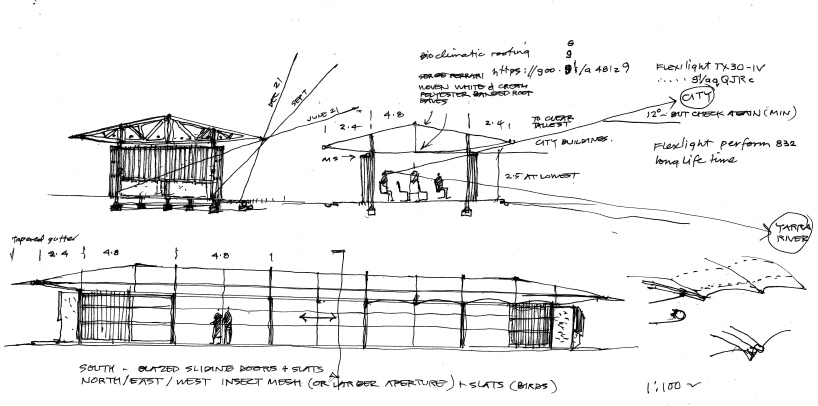 Bioclimatic roofing
SERGE FERRARI https://goo.gl/a48129
WOVEN WHITE & CREAM
POLYESTER BANDED ROOF
EAVES
Flexilight TX30-IV
CITY
12° - BUT CHECK AGAIN (MIN)
Flexlight perform 832
long life time
DEC 21
SEPT
JUNE 21
2.4
4.8
2.4
TO CLEAR
TALLEST
CITY BUILDINGS.
MS
2.5 AT LOWEST
YARRA
RIVER
Tapered gutter
2.4 4.8 4.8
SOUTH - GLAZED SLIDING DOORS + SLATS
NORTH/EAST/WEST INSECT MESH (OR LARGER APERTURE) + SLATS (BIRDS)
1:100